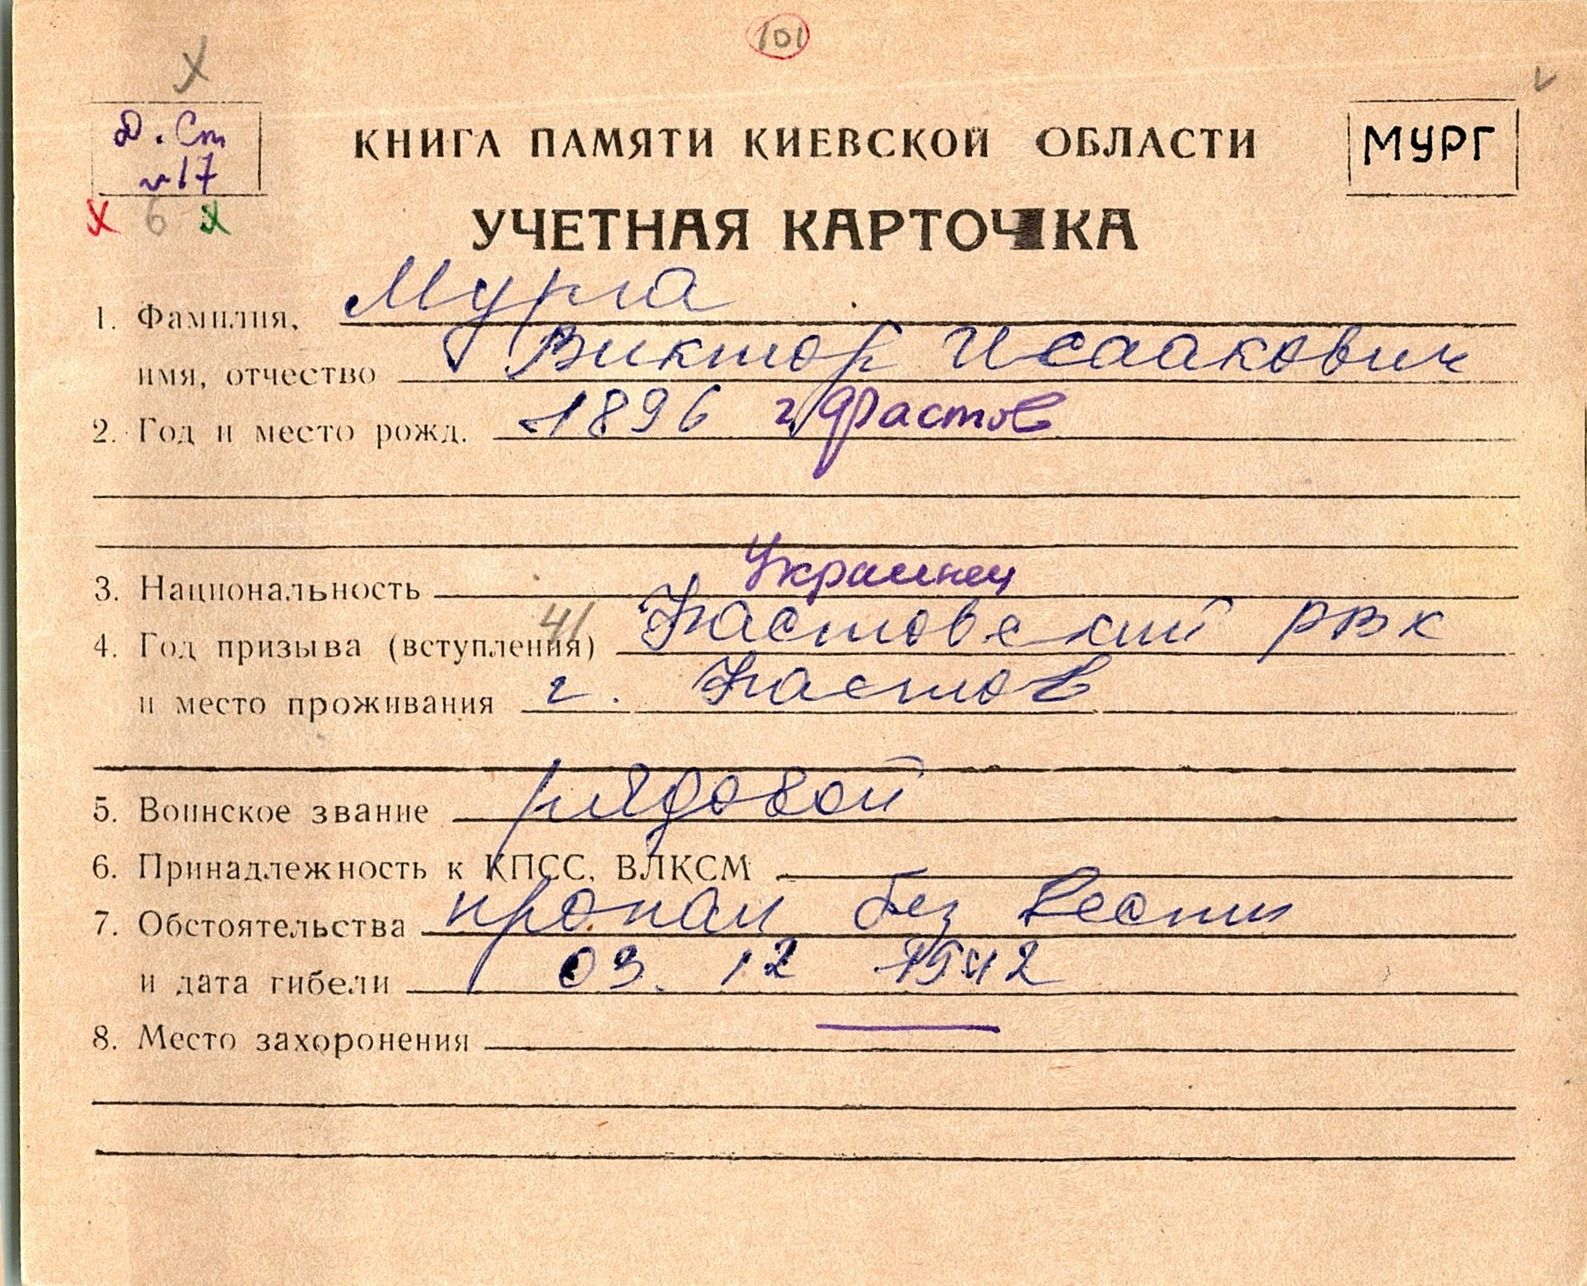 101
Х
V
Д. Ст
17
Х 6 Х
КНИГА ПАМЯТИ КИЕВСКОЙ ОБЛАСТИ
МУРГ
УЧЕТНАЯ КАРТОЧКА
1. Фамилия, Мурга
имя, отчество Виктор Исаакович
2. Год и место рожд. 1896 г. Фастов
3. Национальность Украинец
4. Год призыва (вступления) 41 Фастовский РВК
и место проживания г. Фастов
5. Воинское звание рядовой
6. Принадлежность к КПСС, ВЛКСМ
7. Обстоятельства пропал без вести
и дата гибели 03. 12 1942
8. Место захоронения